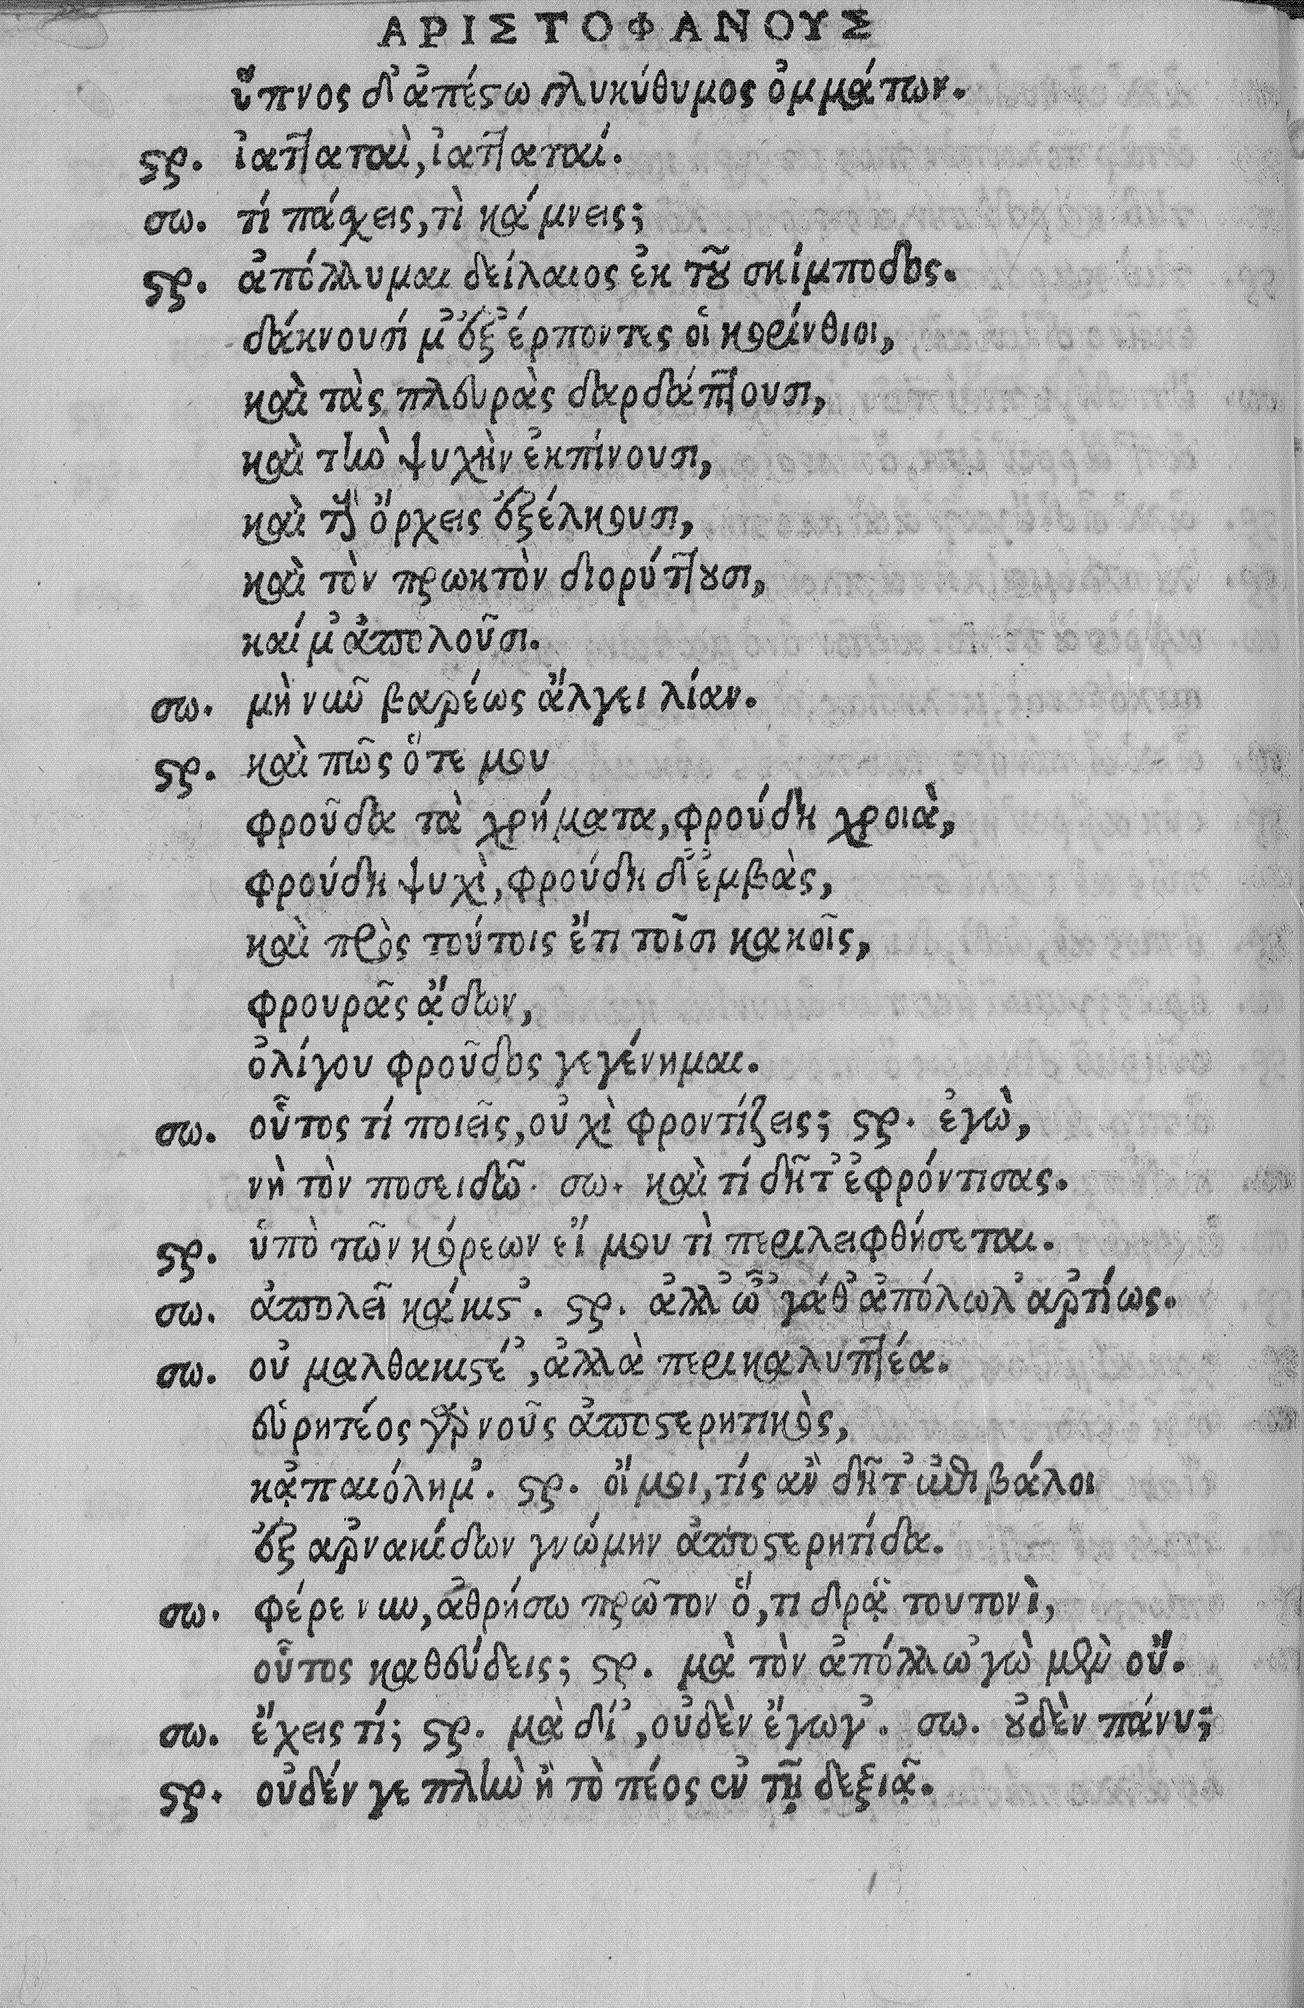 ΑΡΙΣΤΟΦΑΝΟΥΣ
ὕπνος δ' ἀπέστω γλυκύθυμος ὀμμάτων.
στρ. ἰατταταὶ, ἰατταταί.
σω. τί πάχεις, τὶ κάμνεις;
στρ. ἀπόλλυμαι δείλαιος ἐκ τοῦ σκίμποδος.
δάκνουσί μ' ἐξέρποντες οἱ κορίνθιοι,
καὶ τὰς πλευρὰς δαρδάπτουσι,
καὶ τὴν ψυχὴν ἐκπίνουσι,
καὶ τοὺς ὄρχεις ἐξέλκουσι,
καὶ τὸν πρωκτὸν διορύττουσι,
καί μ' ἀπολοῦσι.
σω. μὴ νῦν βαρέως ἄλγει λίαν.
στρ. καὶ πῶς ὅτε μου
φροῦδα τὰ χρήματα, φρούδη χροιὰ,
φρούδη ψυχὶ, φρούδη δ' ἐμβὰς,
καὶ πρὸς τούτοις ἔτι τοῖσι κακοῖς,
φρουρᾶς ᾄδων,
ὀλίγου φροῦδος γεγένημαι.
σω. οὗτος τί ποιεῖς, οὐχὶ φροντίζεις; στρ. ἐγὼ,
νὴ τὸν ποσειδῶ. σω. καὶ τί δῆτ' ἐφρόντισας.
στρ. ὑπὸ τῶν κόρεων εἴ μου τὶ περιλειφθήσεται.
σω. ἀπολεῖ κάκιστ'. στρ. ἀλλ' ὦ 'γάθ' ἀπόλωλ' ἀρτίως.
σω. οὐ μαλθακιστέ', ἀλλὰ περικαλυπτέα.
εὑρητέος γὰρ νοῦς ἀποστερητικὸς,
κᾀπαιόλημ'. στρ. οἴμοι, τίς ἂν δῆτ' ἐπιβάλοι
ἐξ ἀρνακίδων γνώμην ἀποστερητίδα.
σω. φέρε νυν, ἀθρήσω πρῶτον ὅ, τι δρᾷ τουτονὶ,
οὗτος καθεύδεις; στρ. μὰ τὸν ἀπόλλω 'γὼ μὲν οὔ.
σω. ἔχεις τί; στρ. μὰ δί', οὐδὲν ἔγωγ'. σω. οὐδὲν πάνυ;
στρ. οὐδέν γε πλὴν ἢ τὸ πέος ἐν τῇ δεξιᾷ.